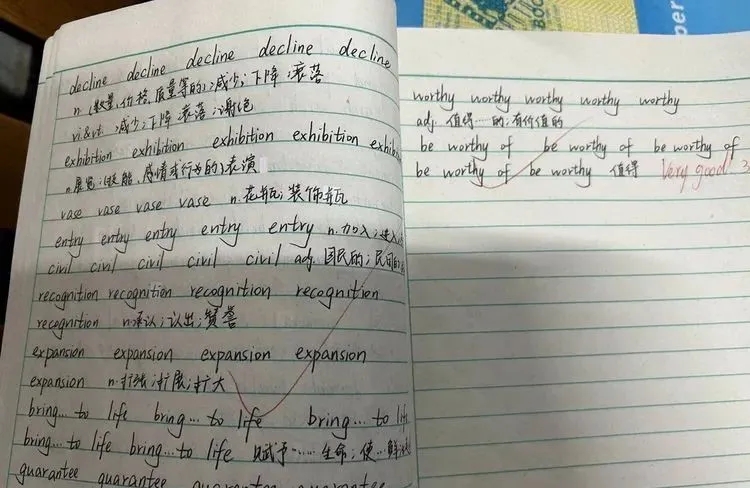 decline decline decline decline decline
n.(数量、价格、质量等的)减少;下降;衰落
vi.&vt. 减少;下降;衰落;谢绝
exhibition exhibition exhibition exhibition
n.展览;(技能、感情或行为的)表演
vase vase vase vase n.花瓶;装饰瓶
entry entry entry entry entry n.加入;进入
civil civil civil civil civil adj. 国民的;民间的
recognition recognition recognition recognition
recognition n.承认;认出;赞誉
expansion expansion expansion expansion
expansion n.扩张;扩展;扩大
bring...to life bring...to life bring...to life
bring...to life bring...to life 赋予……生命;使…鲜
guarantee guarantee guarantee guarantee
worthy worthy worthy worthy worthy
adj. 值得…的;有价值的
be worthy of be worthy of be worthy of
be worthy of be worthy 值得 Very good!